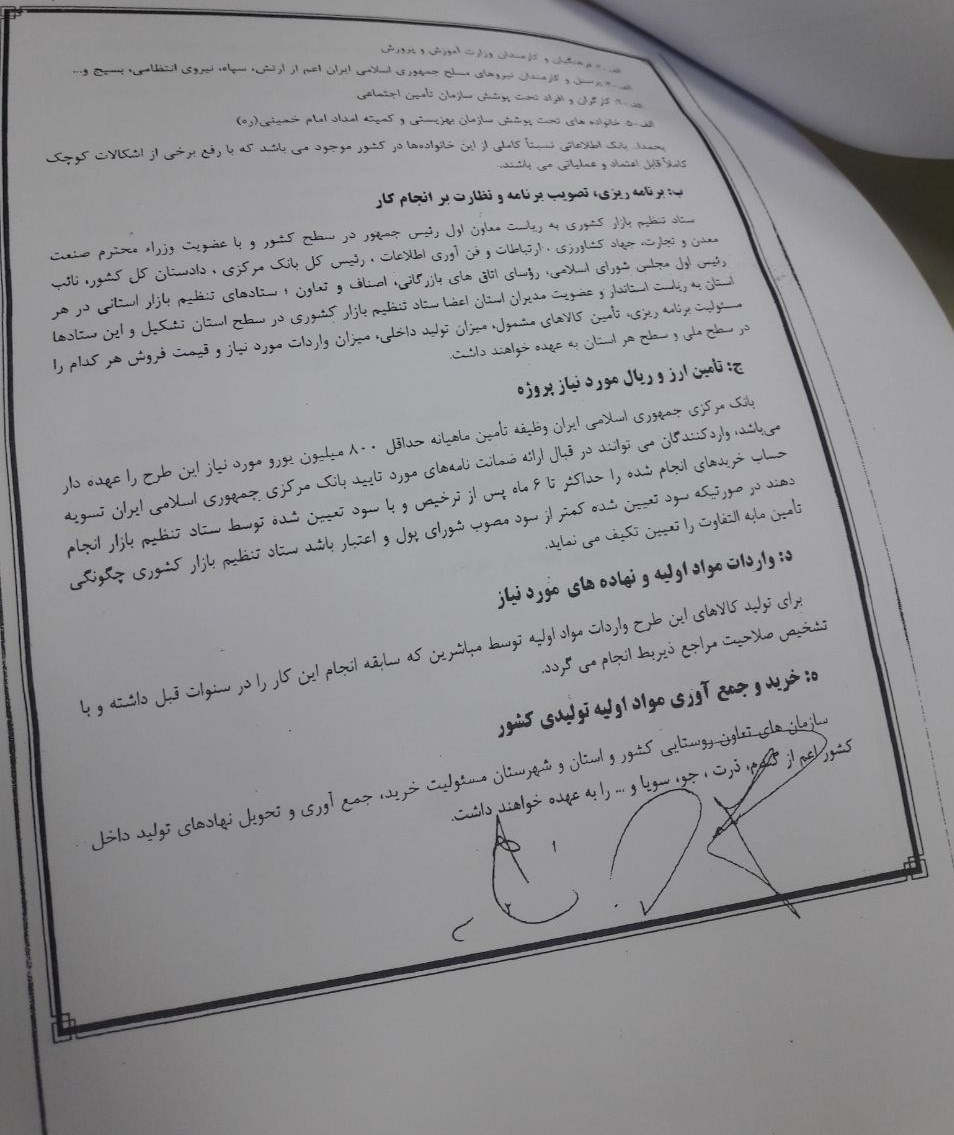 الف-۲- فرهنگیان و کارمندان وزارت آموزش و پرورش
الف-۳- پرسنل و کارمندان نیروهای مسلح جمهوری اسلامی ایران اعم از ارتش، سپاه، نیروی انتظامی، بسیج و...
الف-۴- کارگران و افراد تحت پوشش سازمان تأمین اجتماعی
الف-۵- خانواده های تحت پوشش سازمان بهزیستی و کمیته امداد امام خمینی(ره)
بحمدا... بانک اطلاعاتی نسبتاً کاملی از این خانواده‌ها در کشور موجود می باشد که با رفع برخی از اشکالات کوچک
کاملاً قابل اعتماد و عملیاتی می باشند.
ب: برنامه ریزی، تصویب برنامه و نظارت بر انجام کار
ستاد تنظیم بازار کشوری به ریاست معاون اول رئیس جمهور در سطح کشور و با عضویت وزراء محترم صنعت
معدن و تجارت، جهاد کشاورزی ، ارتباطات و فن آوری اطلاعات ، رئیس کل بانک مرکزی ، دادستان کل کشور، نائب
رئیس اول مجلس شورای اسلامی، رؤسای اتاق های بازرگانی، اصناف و تعاون ؛ ستادهای تنظیم بازار استانی در هر
استان به ریاست استاندار و عضویت مدیران استان اعضا ستاد تنظیم بازار کشوری در سطح استان تشکیل و این ستادها
مسئولیت برنامه ریزی، تأمین کالاهای مشمول، میزان تولید داخلی، میزان واردات مورد نیاز و قیمت فروش هر کدام را
در سطح ملی و سطح هر استان به عهده خواهند داشت.
ج: تأمین ارز و ریال مورد نیاز پروژه
بانک مرکزی جمهوری اسلامی ایران وظیفه تأمین ماهیانه حداقل ۸۰۰ میلیون یورو مورد نیاز این طرح را عهده دار
می‌باشد، واردکنندگان می توانند در قبال ارائه ضمانت نامه‌های مورد تایید بانک مرکزی جمهوری اسلامی ایران تسویه
حساب خریدهای انجام شده را حداکثر تا ۶ ماه پس از ترخیص و با سود تعیین شده توسط ستاد تنظیم بازار انجام
دهند در صورتیکه سود تعیین شده کمتر از سود مصوب شورای پول و اعتبار باشد ستاد تنظیم بازار کشوری چگونگی
تأمین مابه التفاوت را تعیین تکیف می نماید.
د: واردات مواد اولیه و نهاده های مورد نیاز
برای تولید کالاهای این طرح واردات مواد اولیه توسط مباشرین که سابقه انجام این کار را در سنوات قبل داشته و با
تشخیص صلاحیت مراجع ذیربط انجام می گردد.
ه: خرید و جمع آوری مواد اولیه تولیدی کشور
سازمان های تعاون روستایی کشور و استان و شهرستان مسئولیت خرید، جمع آوری و تحویل نهادهای تولید داخل
کشور اعم از گندم، ذرت ، جو، سویا و ... را به عهده خواهند داشت.